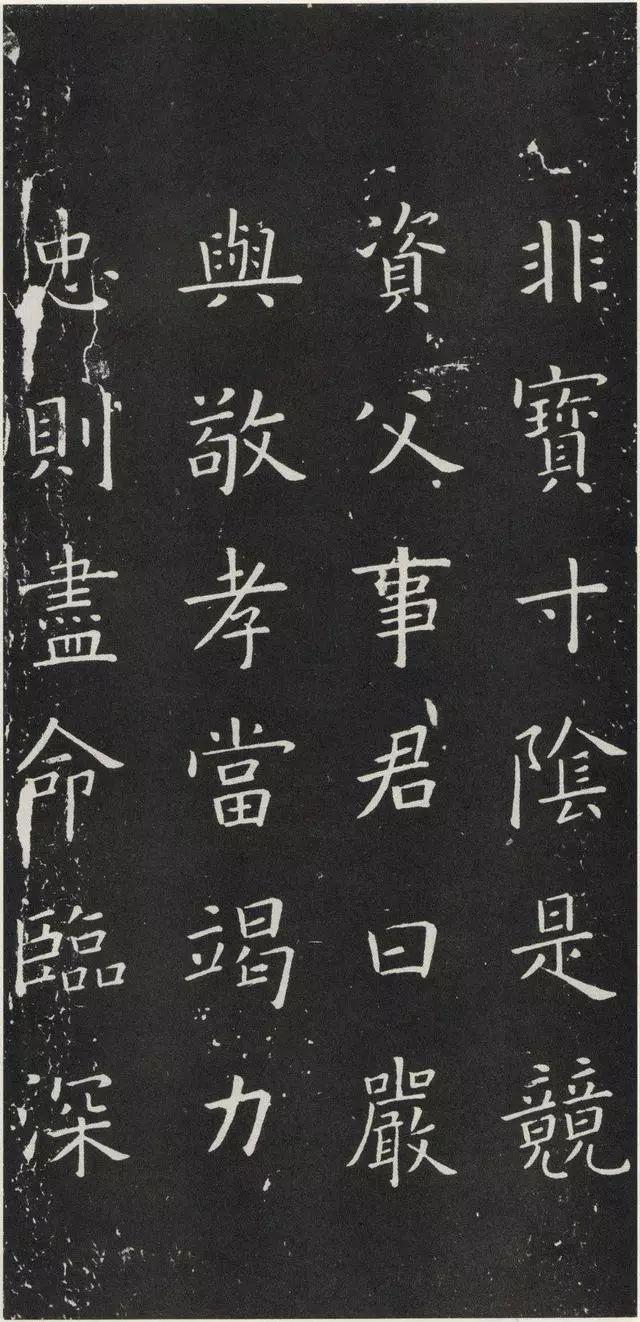 非寶寸陰是競
資父事君曰嚴
與敬孝當竭力
忠則盡命臨深